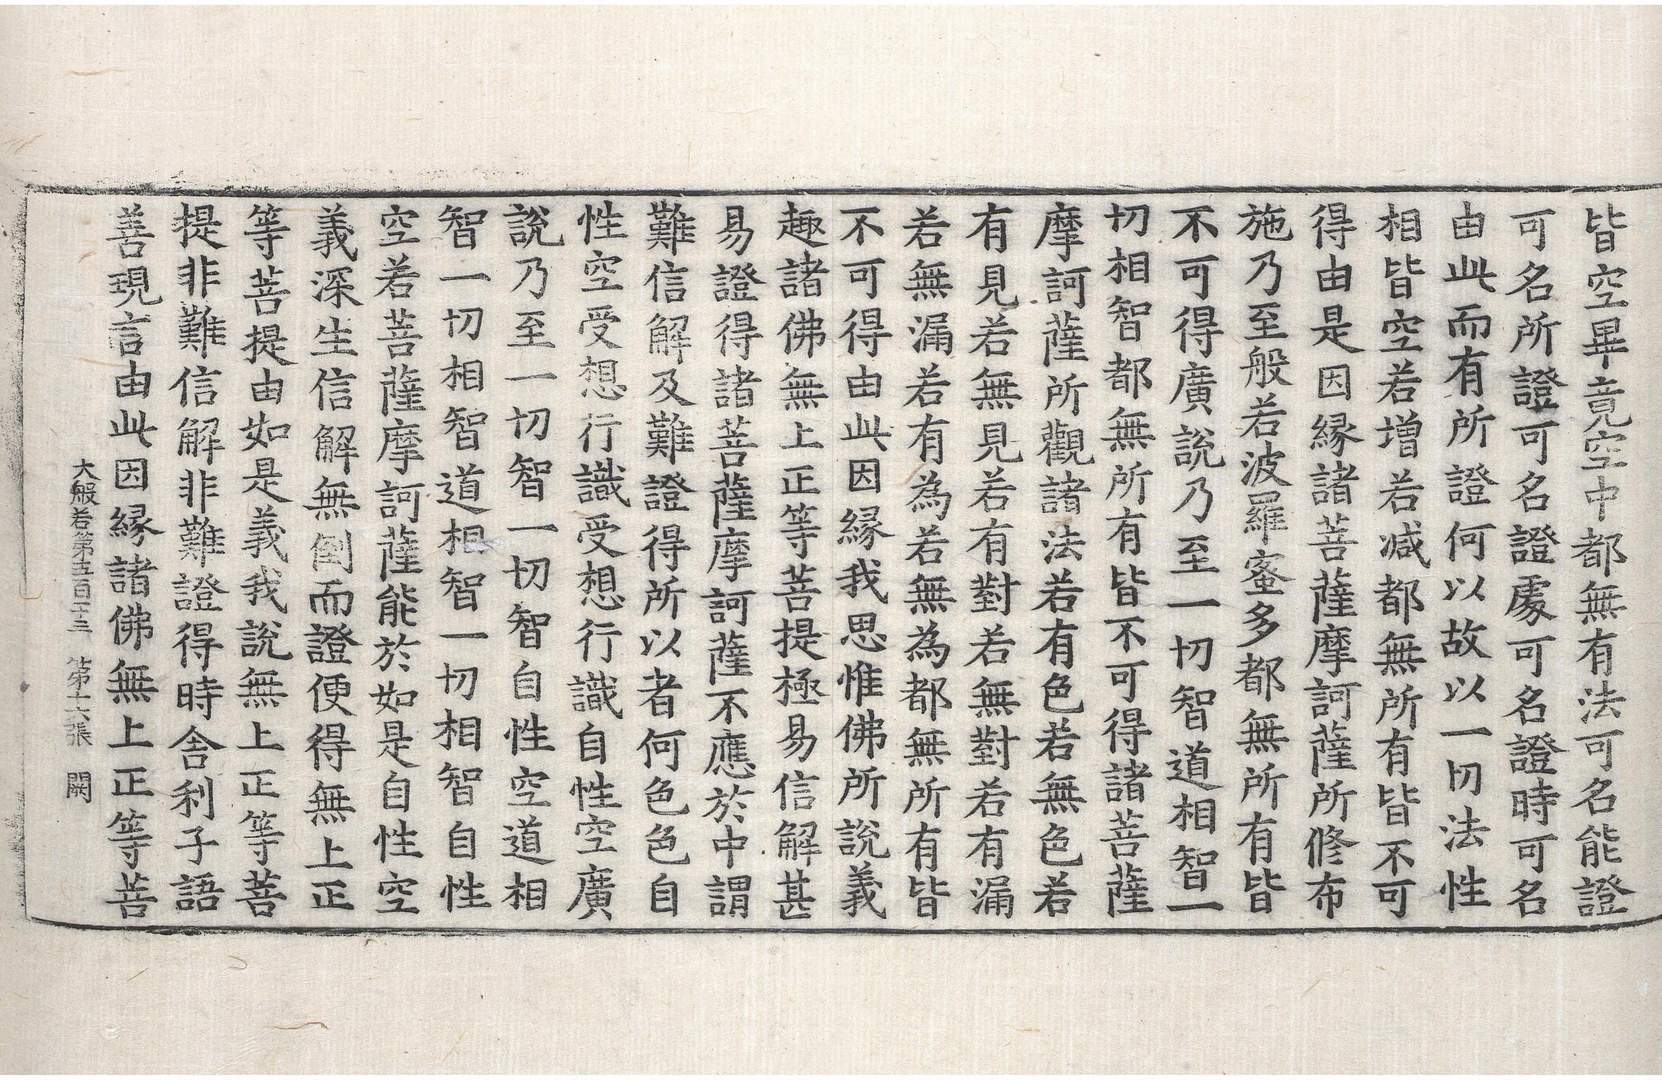 皆空畢竟空中都無有法可名能證
可名所證可名證處可名證時可名
由此而有所證何以故以一切法性
相皆空若增若减都無所有皆不可
得由是因緣諸菩薩摩訶薩所修布
施乃至般若波羅蜜多都無所有皆
不可得廣說乃至一切智道相智一
切相智都無所有皆不可得諸菩薩
摩訶薩所觀諸法若有色若無色若
有見若無見若有對若無對若有漏
若無漏若有為若無為都無所有皆
不可得由此因緣我思惟佛所說義
趣諸佛無上正等菩提極易信解甚
易證得諸菩薩摩訶薩不應於中謂
難信解及難證得所以者何色色自
性空受想行識受想行識自性空廣
說乃至一切智智一切智智自性空道相
智一切相智道相智一切相智自性
空若菩薩摩訶薩能於如是自性空
義深生信解無倒而證便得無上正
等菩提由如是義我說無上正等菩
提非難信解非難證得時舍利子語
善現言由此因緣諸佛無上正等菩
大般若第五百二十三　第十六張　闕